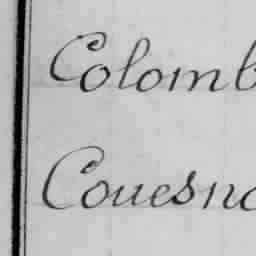 Colomb
Couesno